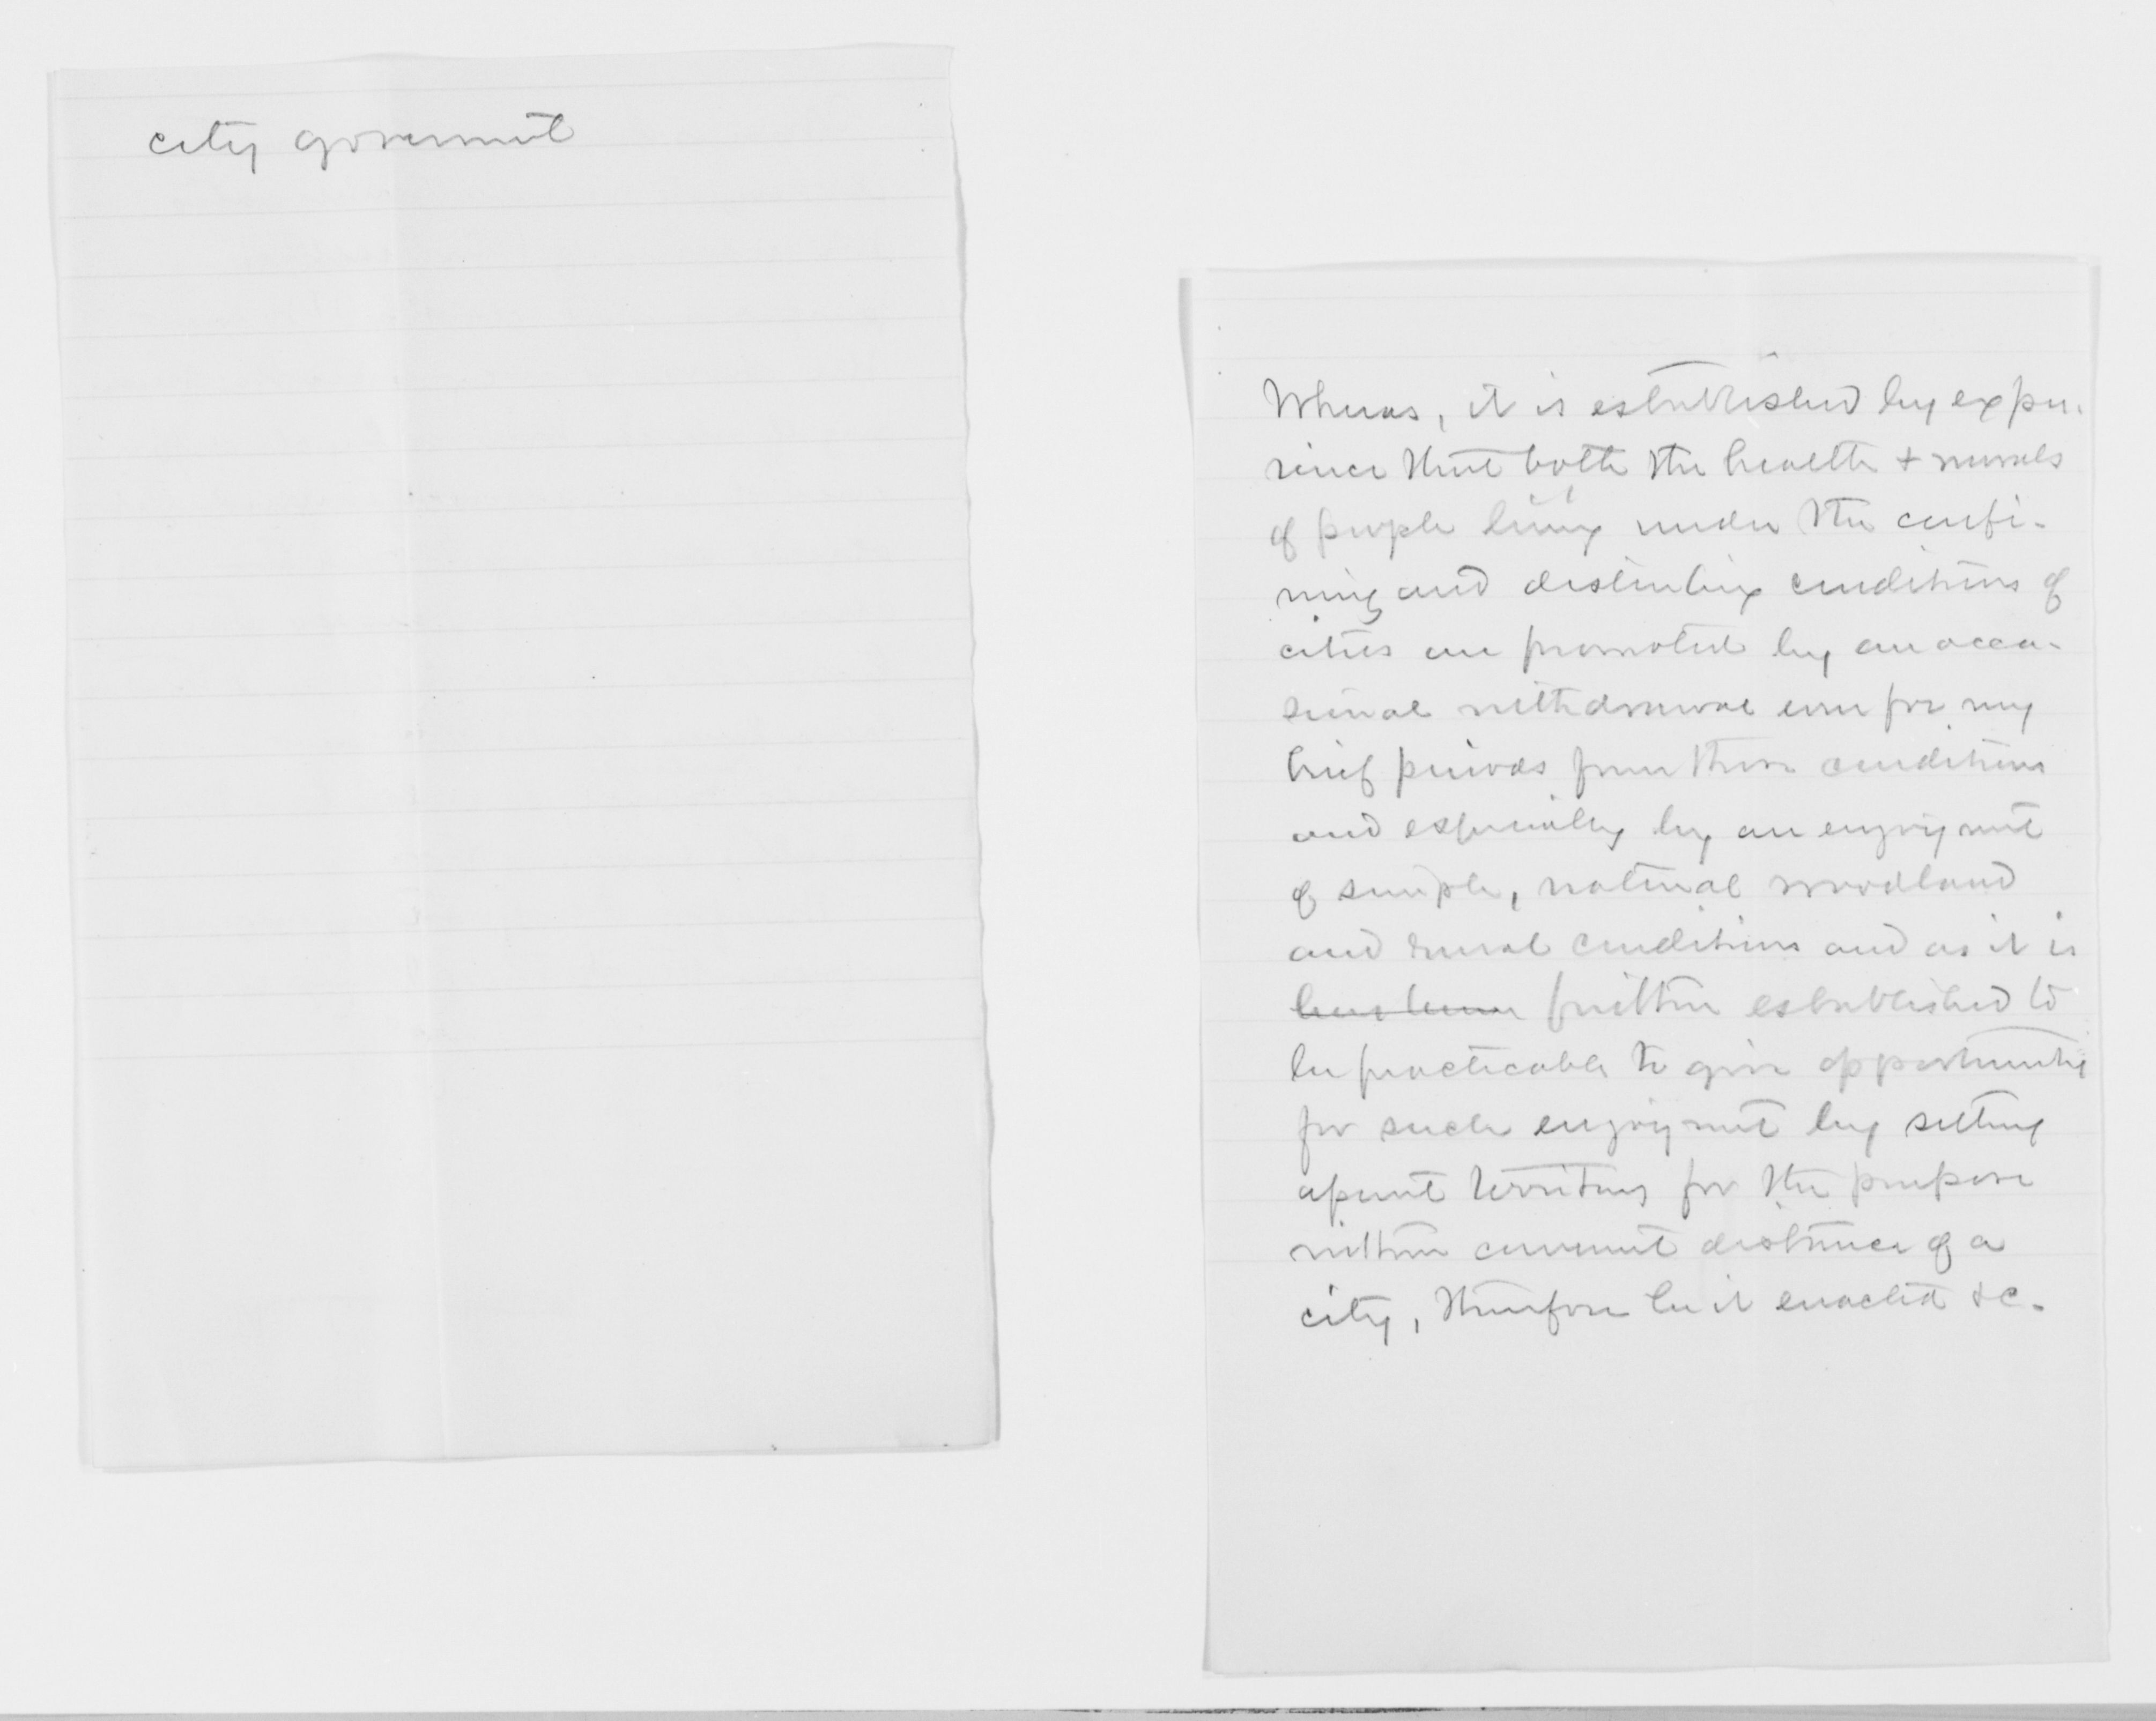 city government
Whereas, it is established by expe-
rience that both the health & morals
of people living under the confi-
ning and disturbing conditions of
cities are promoted by an occa-
sional withdrawal even for very
brief periods from those conditions
and especially by an enjoyment
of simple, natural woodland
and rural conditions and as it is
has been further established to
be practicable to give opportunity
for such enjoyment by setting
apart territory for the purpose
within convenient distance of a
city, therefore be it enacted &c.